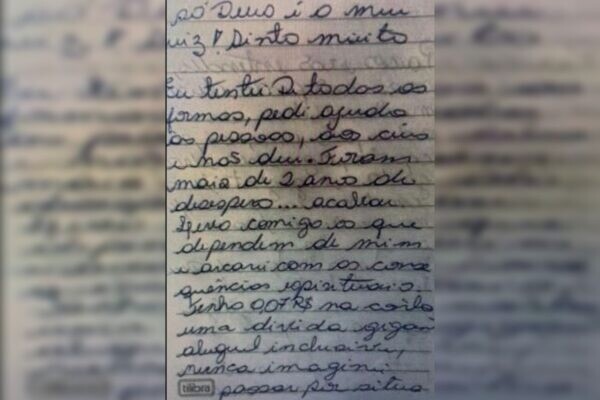 só Deus é o meu
uiz! Sinto muito
Eu tentei De todas as
formas, pedi ajuda
às pessoas, aos céus
e nos deu. Foram
mais de 2 anos de
desespero... acabou.
Levo comigo os que
dependem de mim
e arcarei com as conse
quências espirituais.
Tenho 0,07R$ na conta
uma divida gigan
aluguel inclusive,
nunca imaginei
tilibra passar por situa